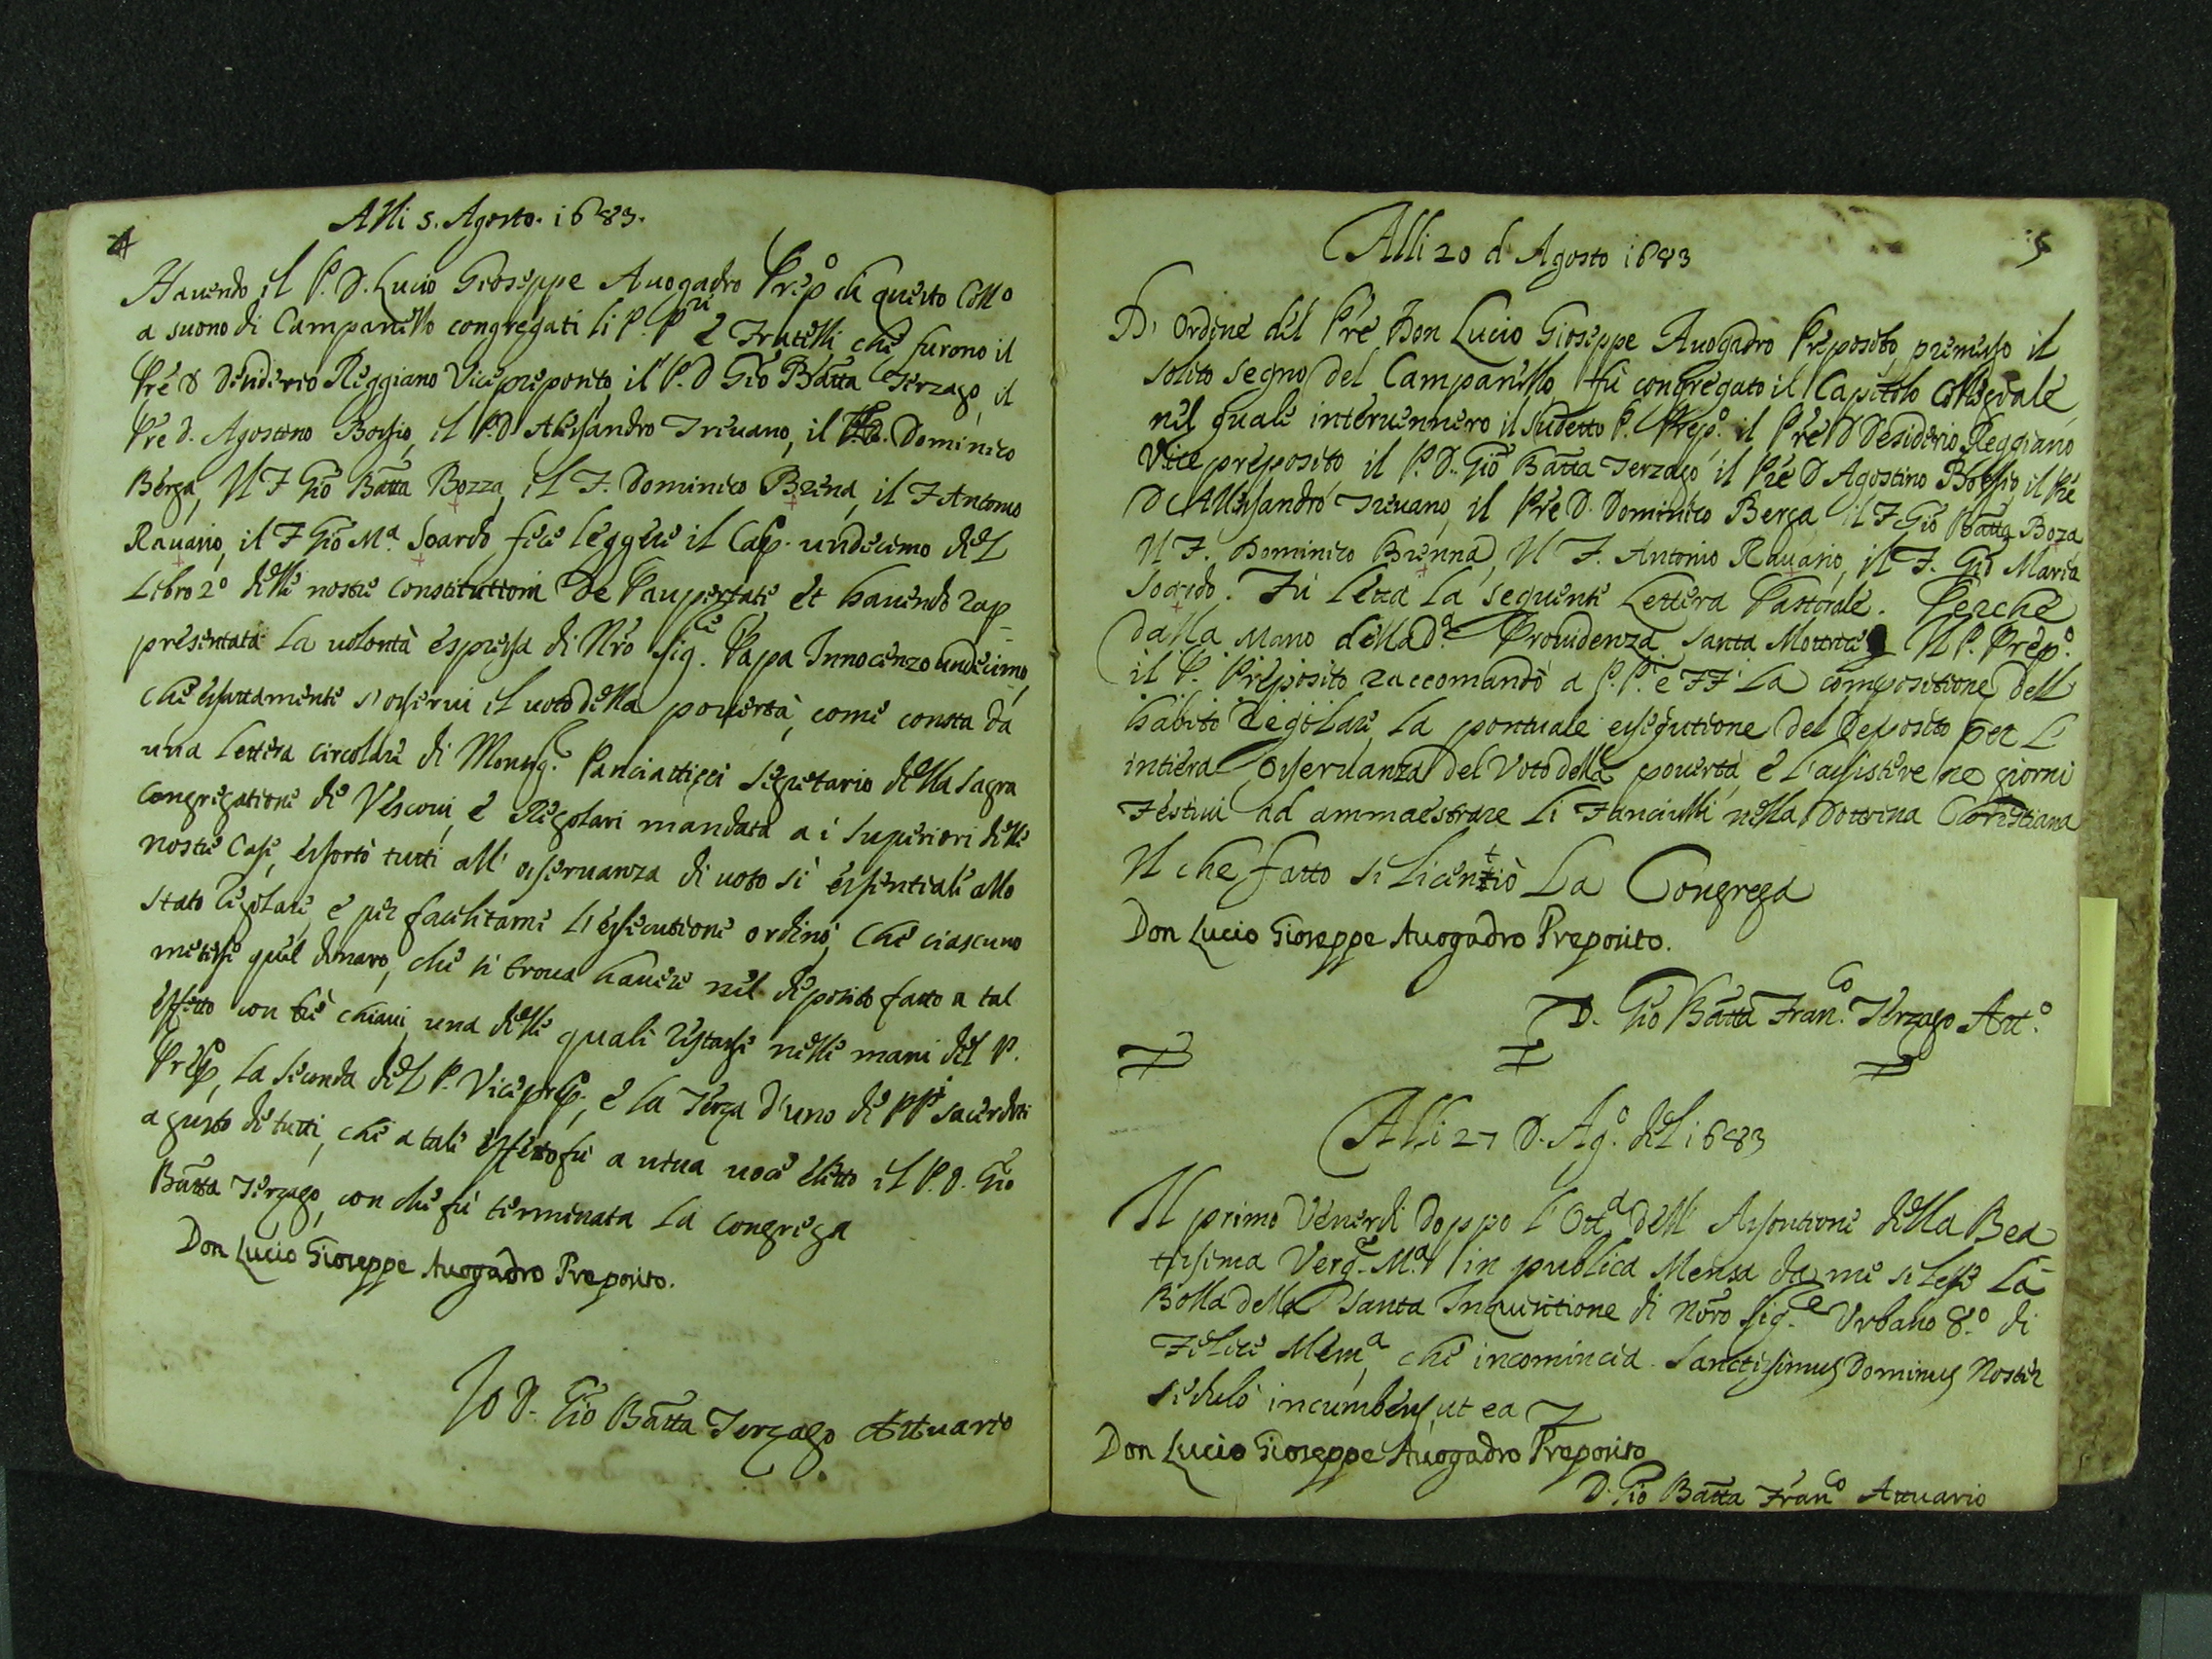 4
Alli 5. Agosto. 1683.
Hauendo il P. D. Lucio Gioseppe Auogadro Prep.o di questo Coll.o
a suono di Campanello congregati li P. P.ri è Fratelli che furono il
Prē D Desiderio Reggiano Vicepreposito, il P. D Giō Batta Terzago, il
Prē d. Agostino Bossio, il P. D Alessandro Treuano, il P. D. Dominico
Berga, Il F Giō Batta Bozza, il F. Dominico Brena, il F Antonio
Rauario, il F Giō M.a Soardo fece leggere il Cap. undecimo del
Libro 2.o delle nostre Constitutioni De Paupertate et hauendo rap-
presentata la uolontà espressa di Nrō Sig.re Papa Innocenzo undecimo
che esattamente s'osserui il uoto della pouertà, come consta da
una lettera circolare di Monsig.r Panciatticci Segretario della Sagra
Congregatione de Vescoui, è Regolari mandata a i Superiori delle
nostre Case, essortò tutti all' osseruanza di uoto sì essentiale allo
stato regolare, e per facilitarne l'essecutione ordinò, che ciascuno
metesse quel denaro, che si troua hauere nel deposito fatto a tal
effetto con trè chiaui, una delle quali restasse nelle mani del P.
Prep.o, la seconda del P. Viceprep.o, e la Terza d'uno de PP.ri sacerdoti
a gusto di tutti, che a tale effetto fù a uiua uoce eletto il P. D. Giō
Batta Terzago, con che fù terminata la congrega
Don Lucio Gioseppe Auogadro Preposito.
Io D. Giō Batta Terzago Attuario
5
Alli 20 d Agosto 1683
D'Ordine del Prē Don Lucio Gioseppe Auogadro Preposito premesso il
solito segno del Campanello fù congregato il Capitolo Collegiale
nel quale interuennero il sudetto P. Prep.o il Prē D Desiderio Reggiano
Vice preposito il P. D. Giō Batta Terzago, il Prē D Agostino Bossio, il Prē
D Allessandro Treuano, il Prē D. Dominico Berga il F Giō Batta Boza
Il F. Dominico Brenna, Il F. Antonio Rauario, il F. Giō Maria
Soardo. Fù letta la seguente Lettera Pastorale. Perche
dalla mano della D.a Prouidenza Santa Il P. Prep.o
il P. Preposito raccomandò a P.P. e FF la compositione dell'
habito regolare, la pontuale essegutione del Deposito per l'
intiera Osseruanza del Voto della pouertà, e l'assistere ne giorni
Festiui ad ammaestrare li Fanciulli nella Dottrina Christiana
Il che fatto si licentiò La Congrega
Don Lucio Gioseppe Auogadro Preposito.
D. Giō Batta Fran.co Terzago Att.o
Alli 27 D. Ag.o del 1683
Il primo Venerdi doppo l'Ott.a dell' Assontione della Bea
tissima Verg.e M.a in publica Mensa da me si lesse la
Bolla della Santa Inquisitione di Nōro Sig.re Vrbano 8.o di
Felice Mem.a che incomincia. Sanctissimus Dominus Noster
sedulò incumbens, ut ea
Don Lucio Gioseppe Auogadro Preposito
D. Giō Batta Fran.co Attuario